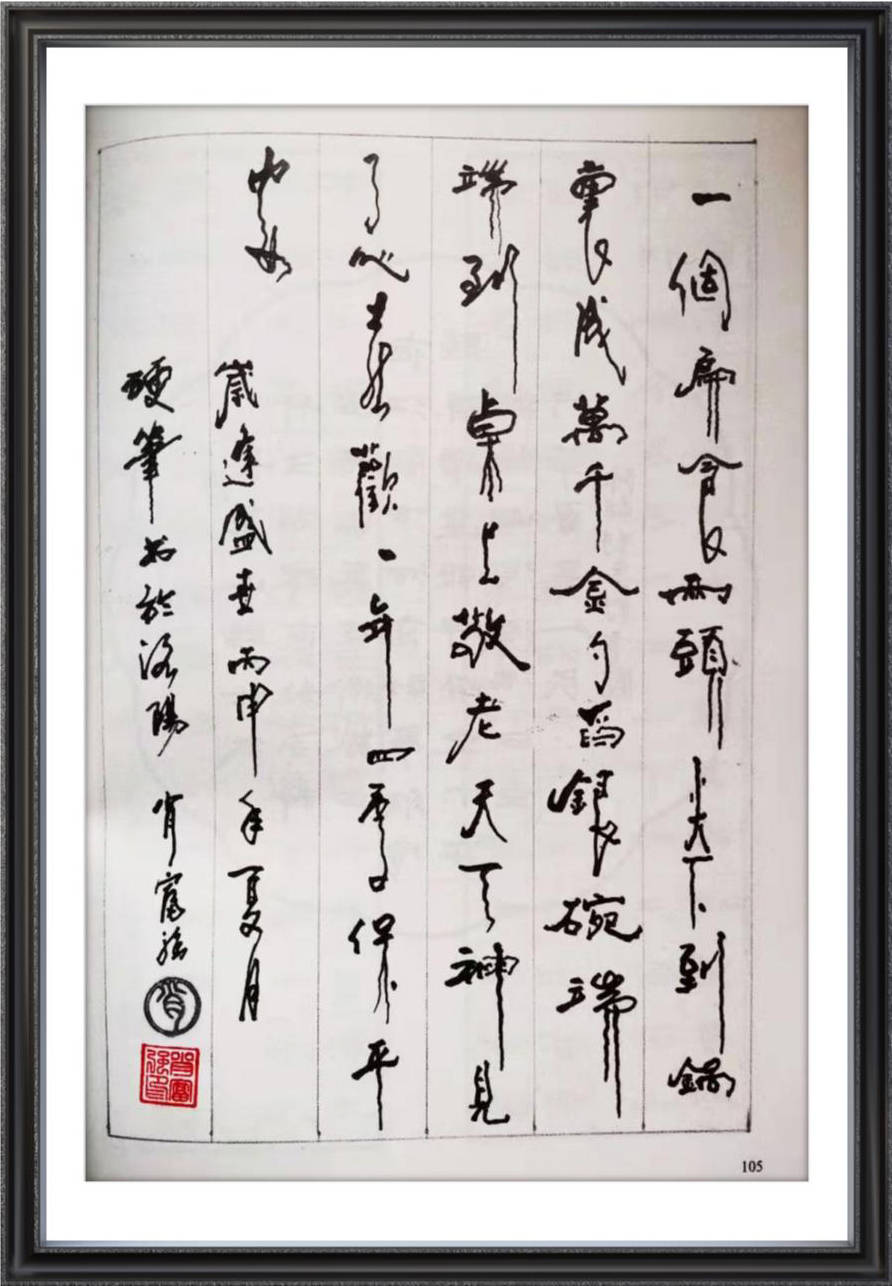 一個扁食兩頭尖下到鍋
裏成萬千金勺舀銀碗端
端到桌上敬老天天神見
了心喜歡一年四季保平
歲逢盛世丙申年夏月
硬筆书於洛陽 肖富強
肖
肖富強印
105